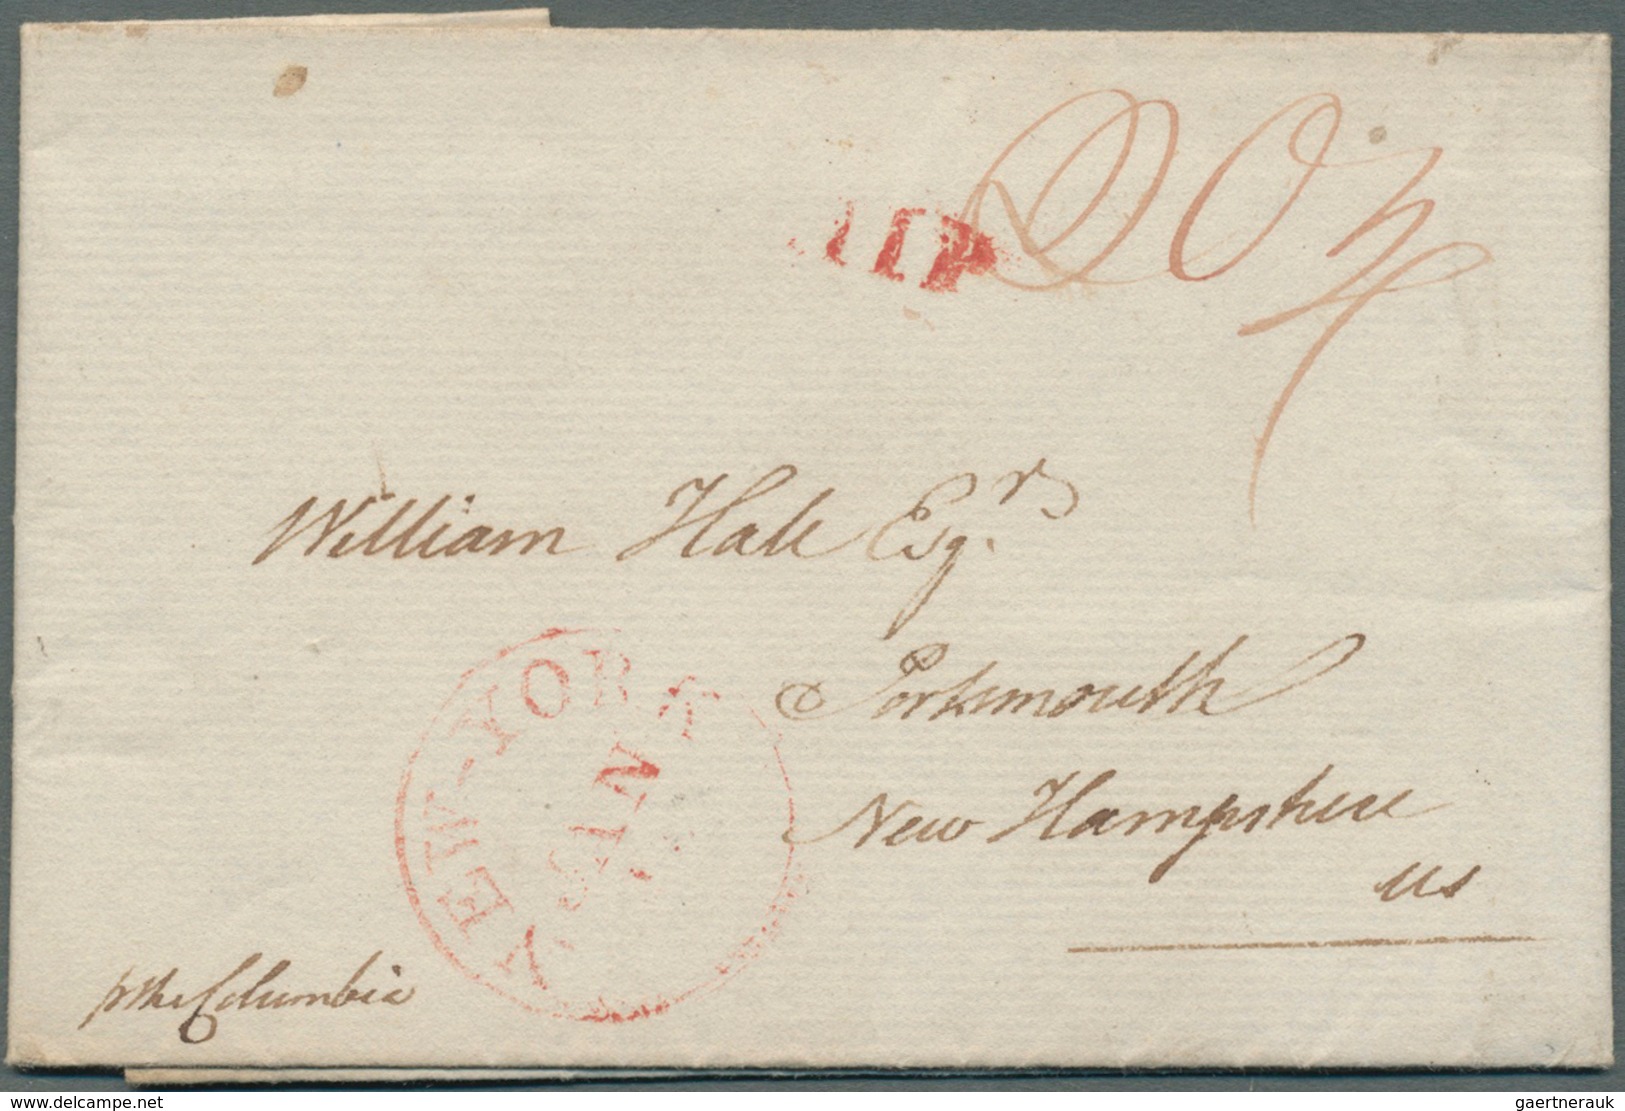 20 3/4
William Hale Esqr
Portsmouth
New Hampshire
us
NEW-YORK
JAN
pr the Columbia
www.delcampe.net
gaertnerauk